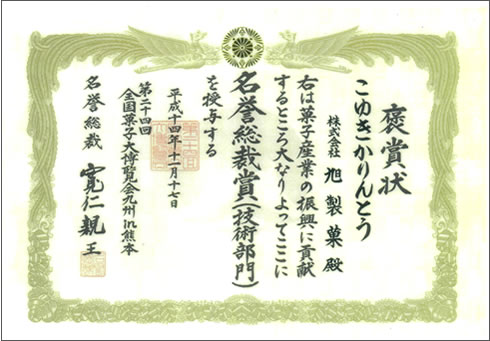 褒賞状
こゆきかりんとう
株式会社 旭製菓殿
右は菓子産業の振興に貢献
するところ大なりよってここに
名誉総裁賞(技術部門)
を授与する
平成十四年十一月十七日
第二十四回
全国菓子大博覧会九州in熊本
名誉総裁 寛仁親王